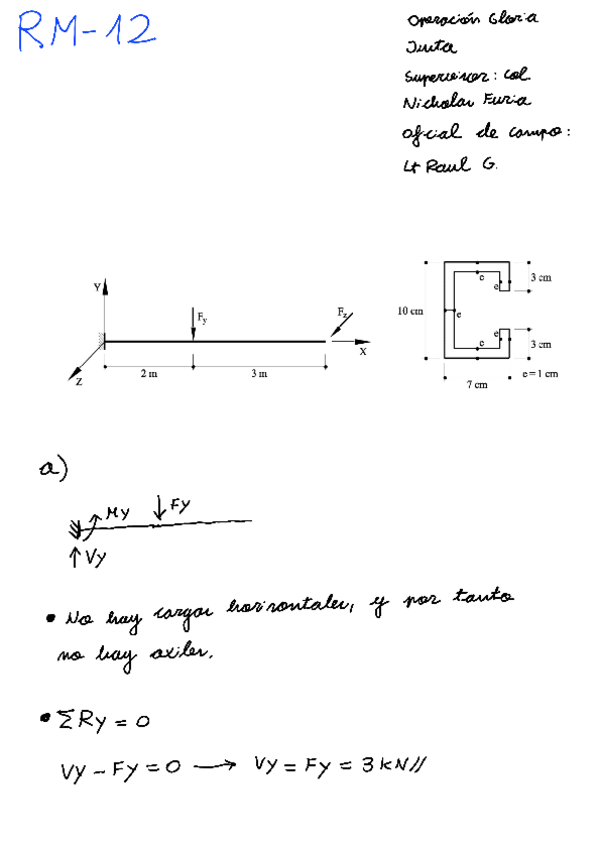 RM-12
Operación Gloria
Junta
Supervisor: Col.
Nicholas Furia
Oficial de campo:
Lt Raul G.
Y
Fy
Fz
X
Z
2 m
3 m
10 cm
e
e
3 cm
e
e
e
3 cm
7 cm
e = 1 cm
a)
My
Fy
Vy
• No hay cargas horizontales, y por tanto
no hay axiles.
• ΣRy = 0
Vy - Fy = 0 → Vy = Fy = 3 kN//